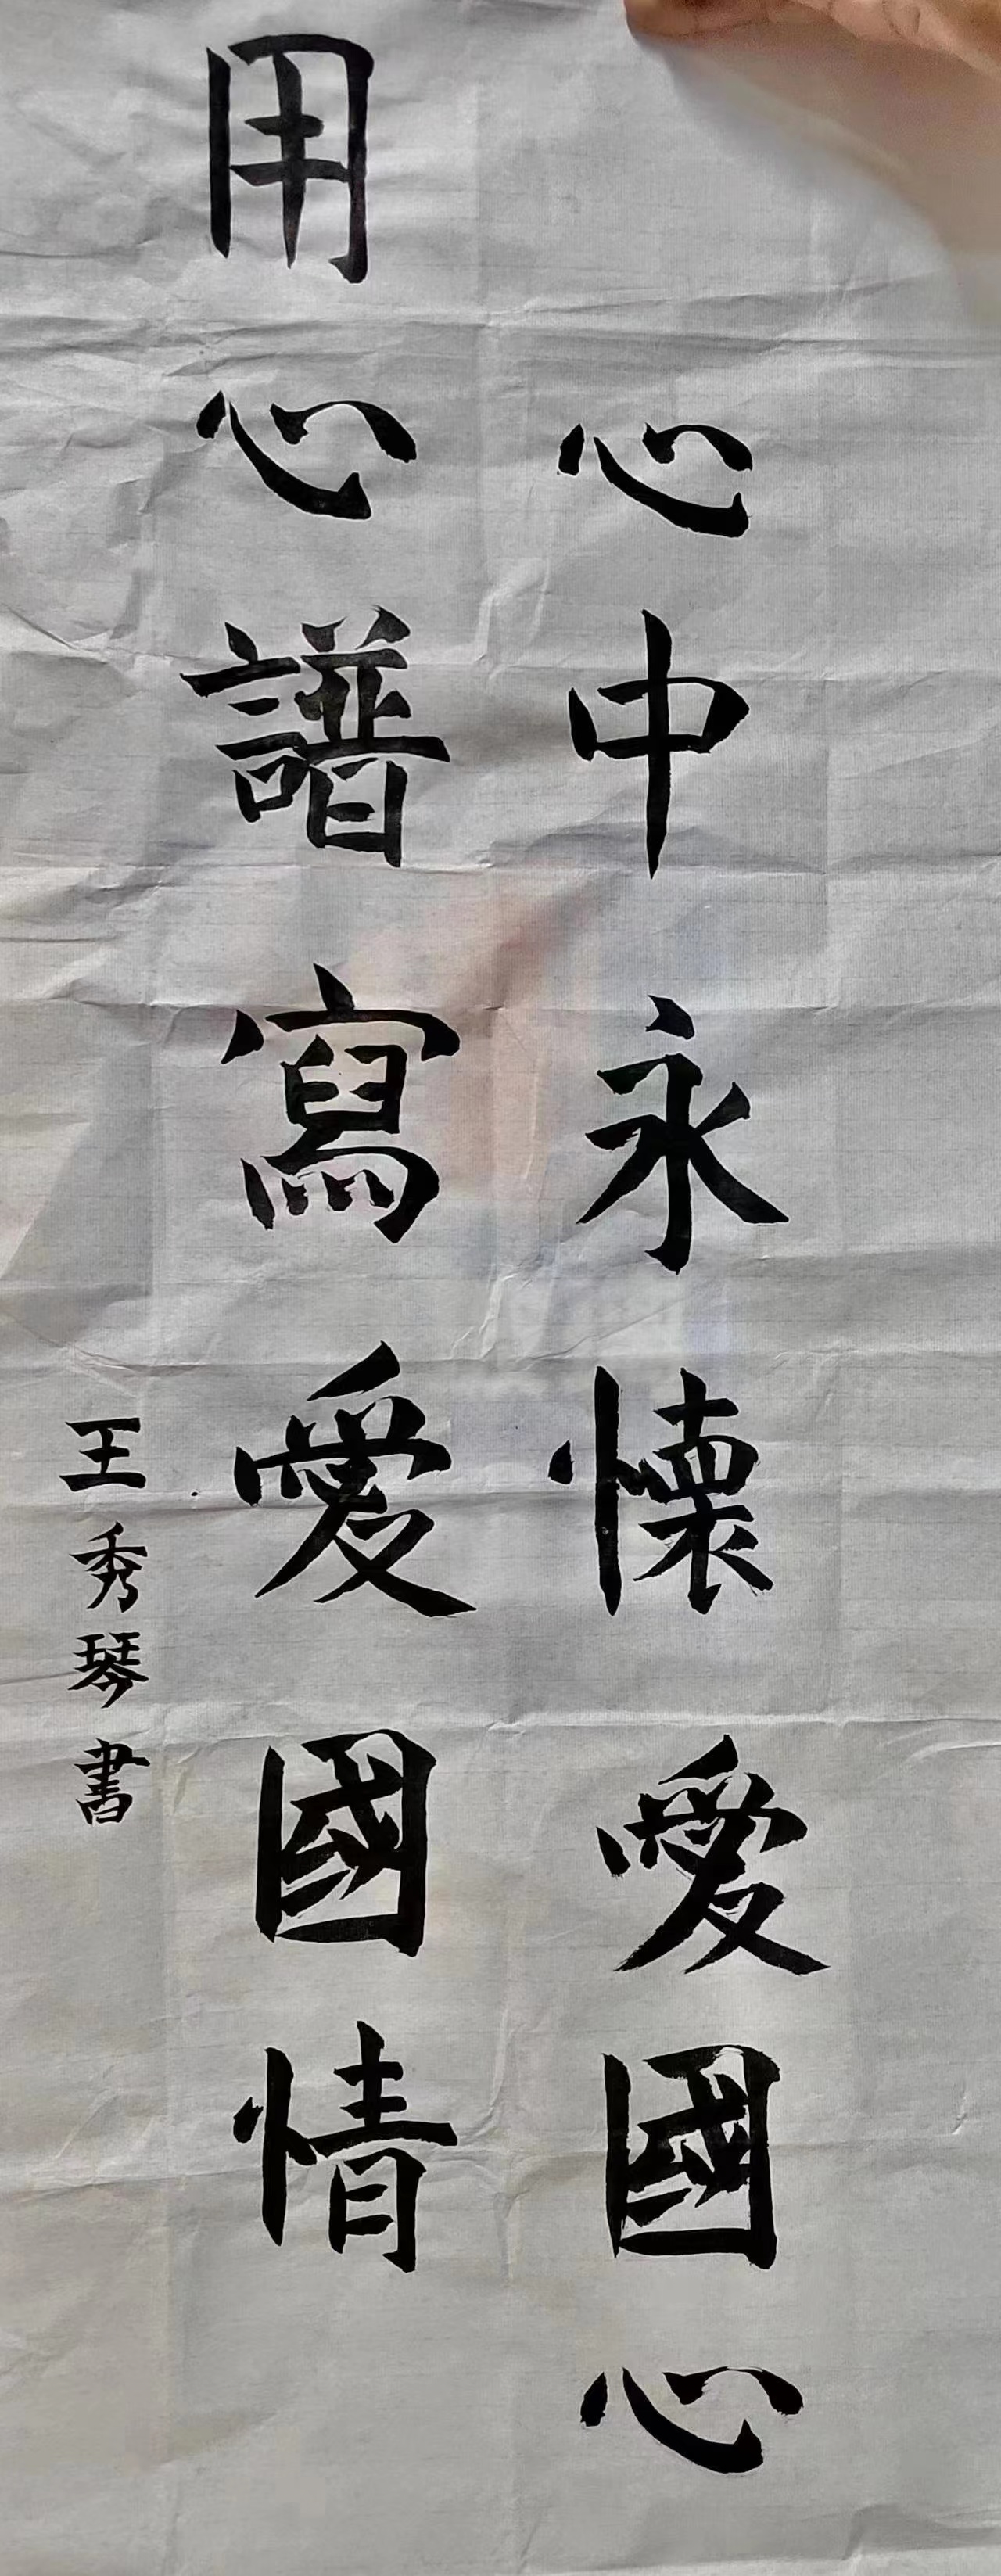 心中永懷愛國心
用心譜寫愛國情
王秀琴書